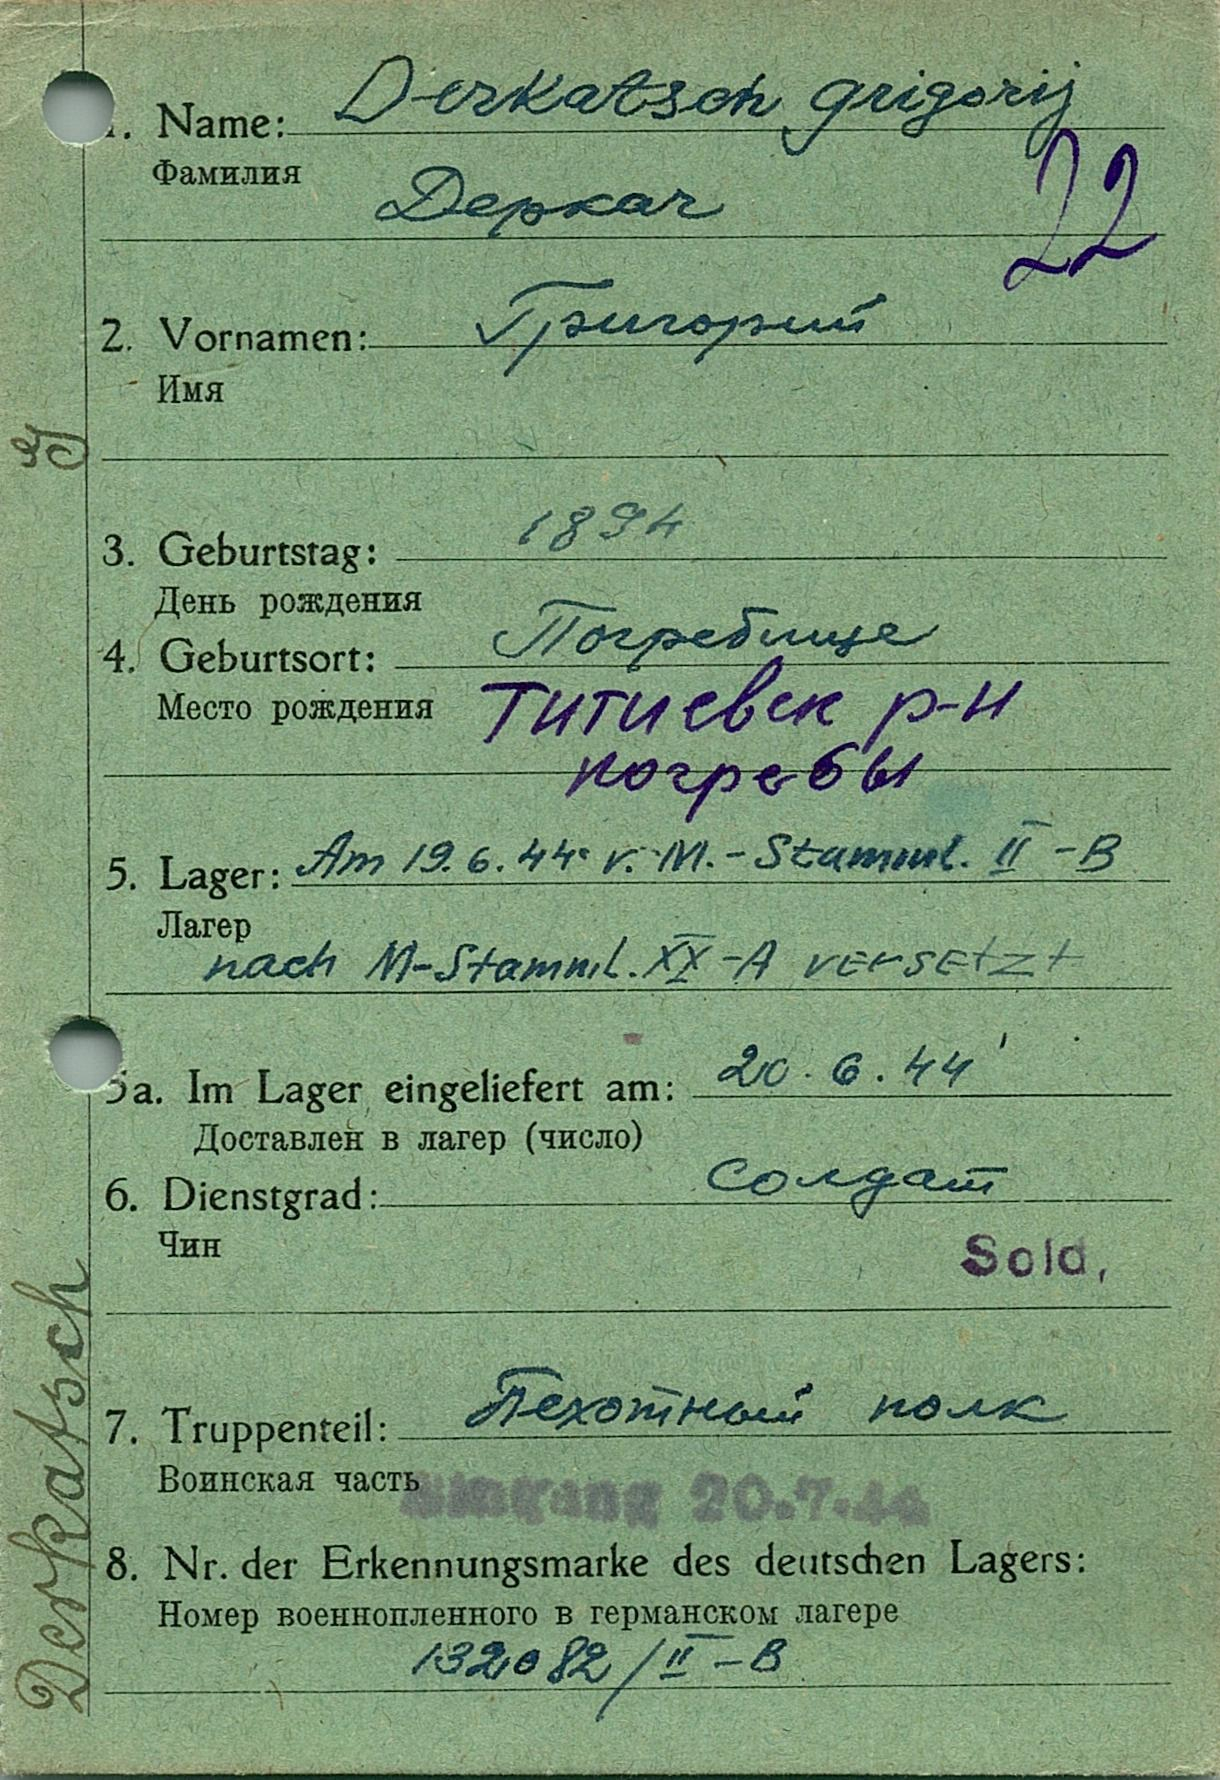 1. Name: Derkatsch Grigorij
Фамилия
Деркач
22
2. Vornamen: Григорий
Имя
3. Geburtstag: 1894
День рождения
4. Geburtsort: Погребище
Место рождения Титиевск р-н
погребы
5. Lager: Am 19.6.44. v. M.-Stamml. II-B
Лагер
nach M-Stamml. XX-A versetzt
5a. Im Lager eingeliefert am: 20.6.44
Доставлен в лагер (число)
6. Dienstgrad: Солдат
Чин
Sold.
7. Truppenteil: Пехотный полк
Воинская часть
Eingang 20.7.44
8. Nr. der Erkennungsmarke des deutschen Lagers:
Номер военнопленного в германском лагере
132082/II-B
Derkatsch